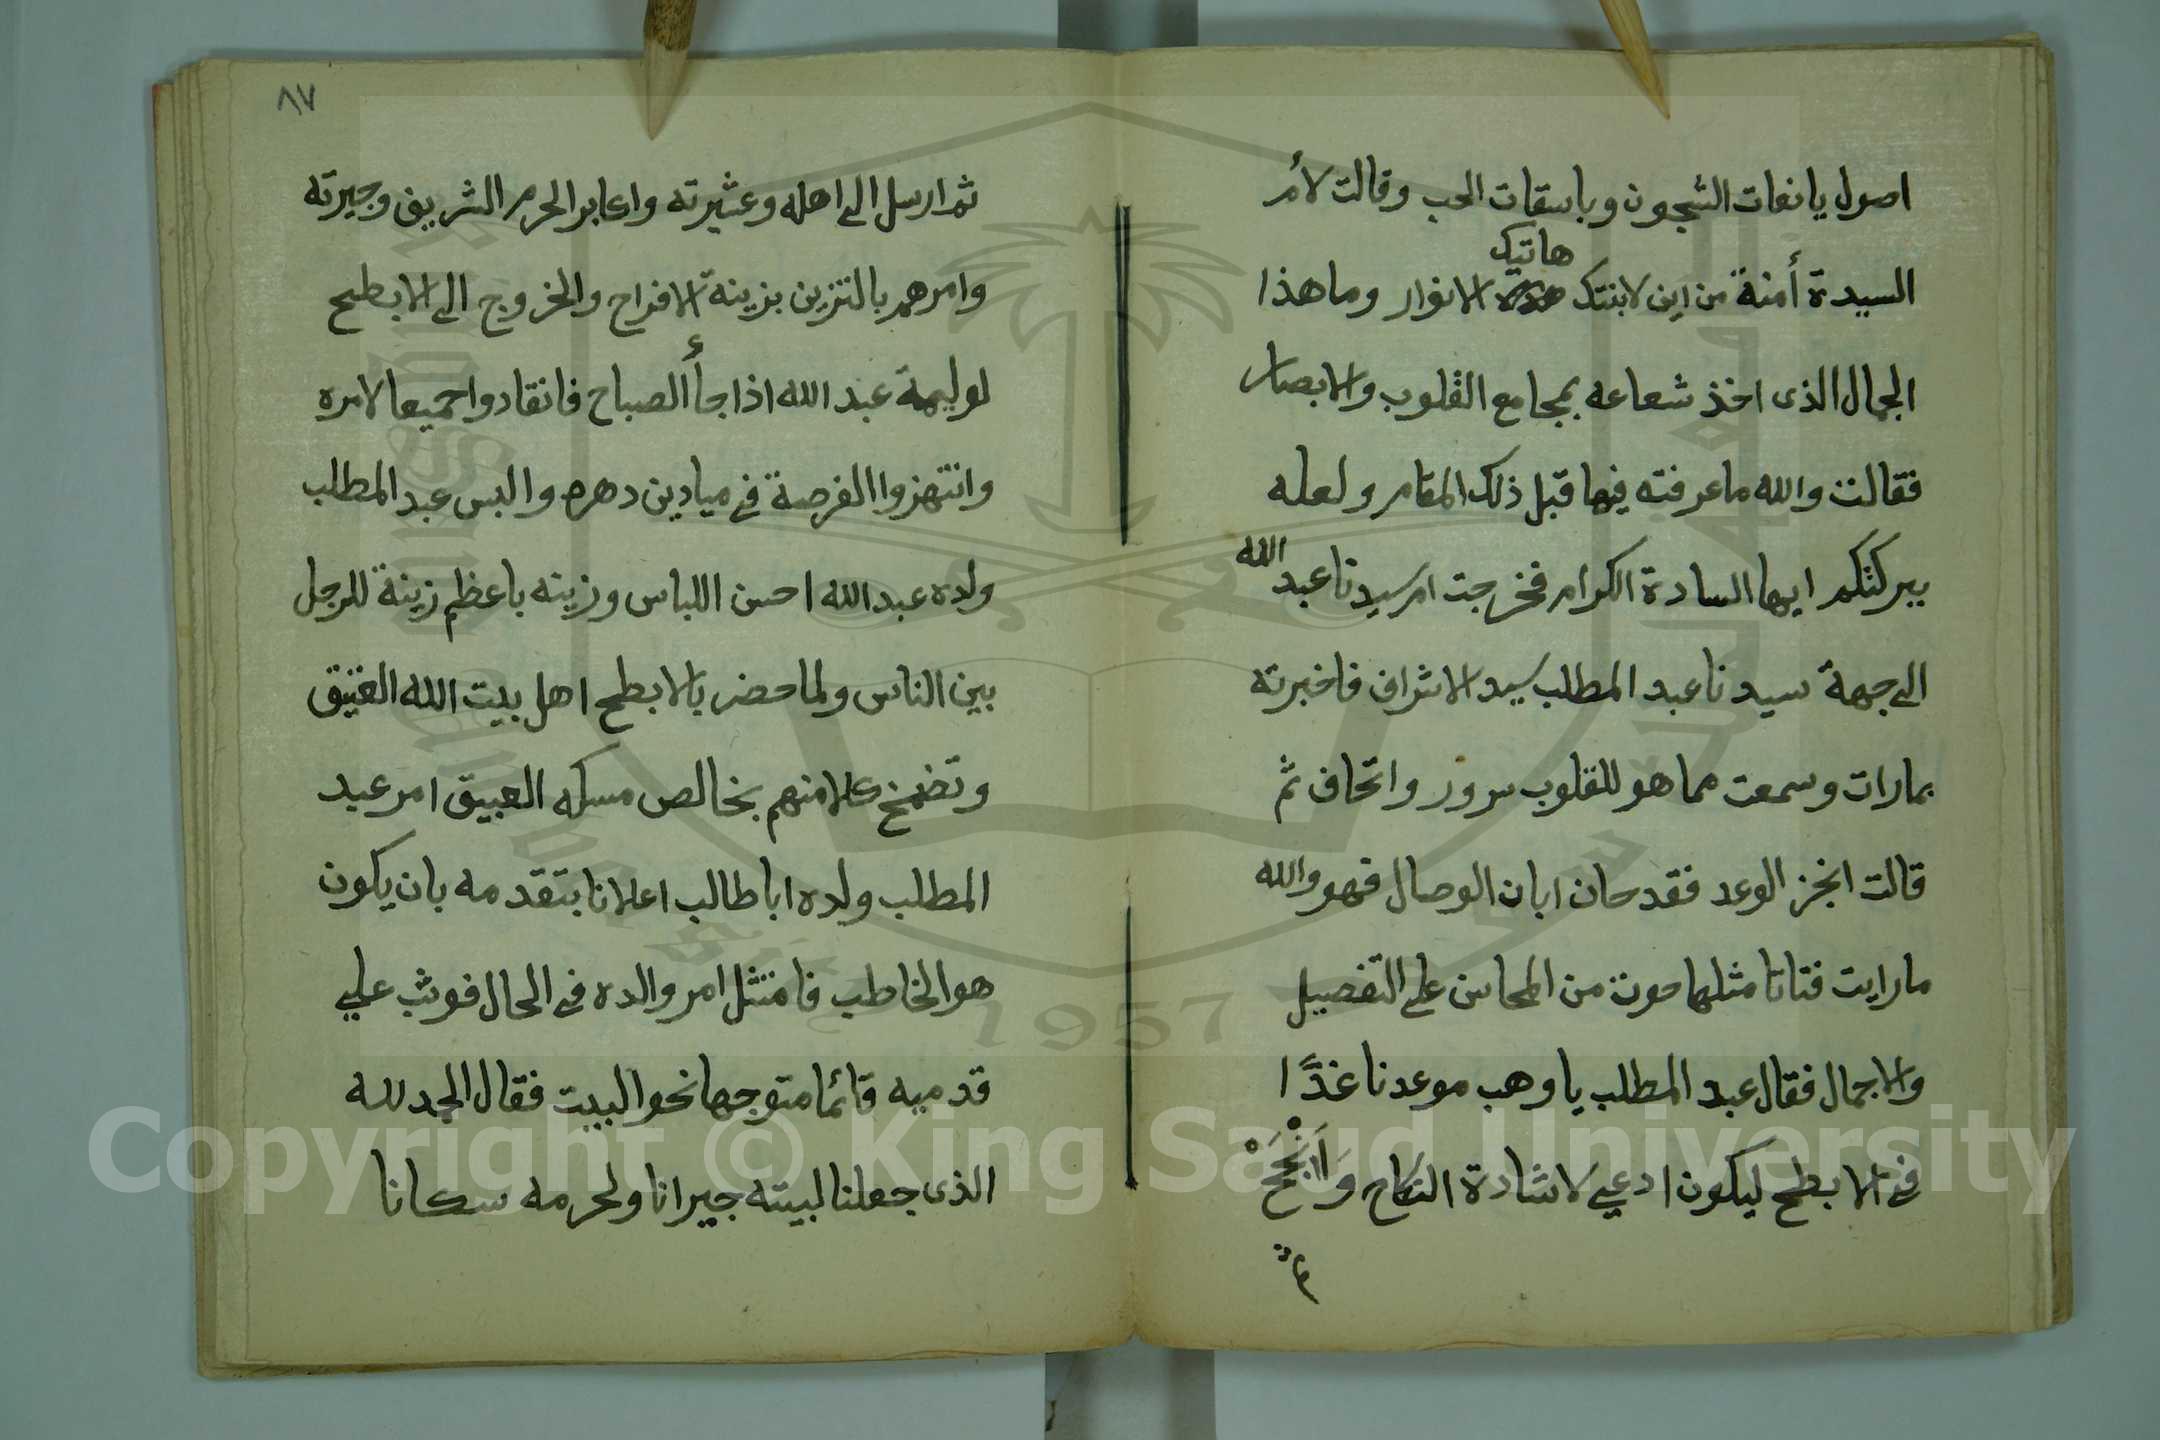 اصول يانعات الشجون وباسقات الحب وقالت لأم
السيدة أمنة من اين لابنتك هاتيك الانوار وماهذا
الجمال الذى اخذ شعاعه بمجامع القلوب والابصار
فقالت والله ماعرفته فيها قبل ذلك المقام ولعله
ببركتكم ايها السادة الكرام فخرجت ام سيدنا عبد الله
الى جهة سيدنا عبد المطلب سيد الاشراف فاخبرته
بمارات وسمعت مما هو للقلوب سرور واتحاف ثم
قالت انجز الوعد فقد حان ابان الوصال فهو والله
مارايت فتاتا مثلها حوت من المحاسن على التفصيل
والاجمال فقال عبد المطلب يا وهب موعدنا غدًا
فى الابطح ليكون ادعى لاشادة النكاح وَاَنْجَحْ
ثم
٨٧
ثم ارسل الى اهله وعشيرته واكابر الحرم الشريف وجيرته
وامرهم بالتزين بزينة الافراح والخروج الى الابطح
لوليمة عبد الله اذا جاأ الصباح فانقادوا جميعا لامره
وانتهزوا الفرصة فى ميادين دهره والبس عبد المطلب
ولده عبد الله احسن اللباس وزينه باعظم زينة للرجل
بين الناس ولما حضر بالابطح اهل بيت الله العتيق
وتضمخ كلا منهم بخالص مسكه العبيق امر عبد
المطلب ولده ابا طالب اعلانا بتقدمه بان يكون
هو الخاطب فامتثل امر والده فى الحال فوثب على
قدميه قائما متوجها نحو البيت فقال الحمد لله
الذى جعلنا لبيته جيرانا ولحرمه سكانا
1957
Copyright © King Saud University